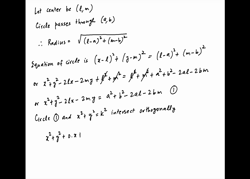 Let center be (l, m)
Circle passes through (a, b)
∴ Radius = √(l-a)² + (m-b)²
Equation of circle is (x-l)² + (y-m)² = (l-a)² + (m-b)²
or x² + y² - 2lx - 2my + l² + m² = l² + m² + a² + b² - 2al - 2bm
or x² + y² - 2lx - 2my = a² + b² - 2al - 2bm ①
Circle ① and x² + y² = k² intersect orthogonally
x² + y² + 0.x +